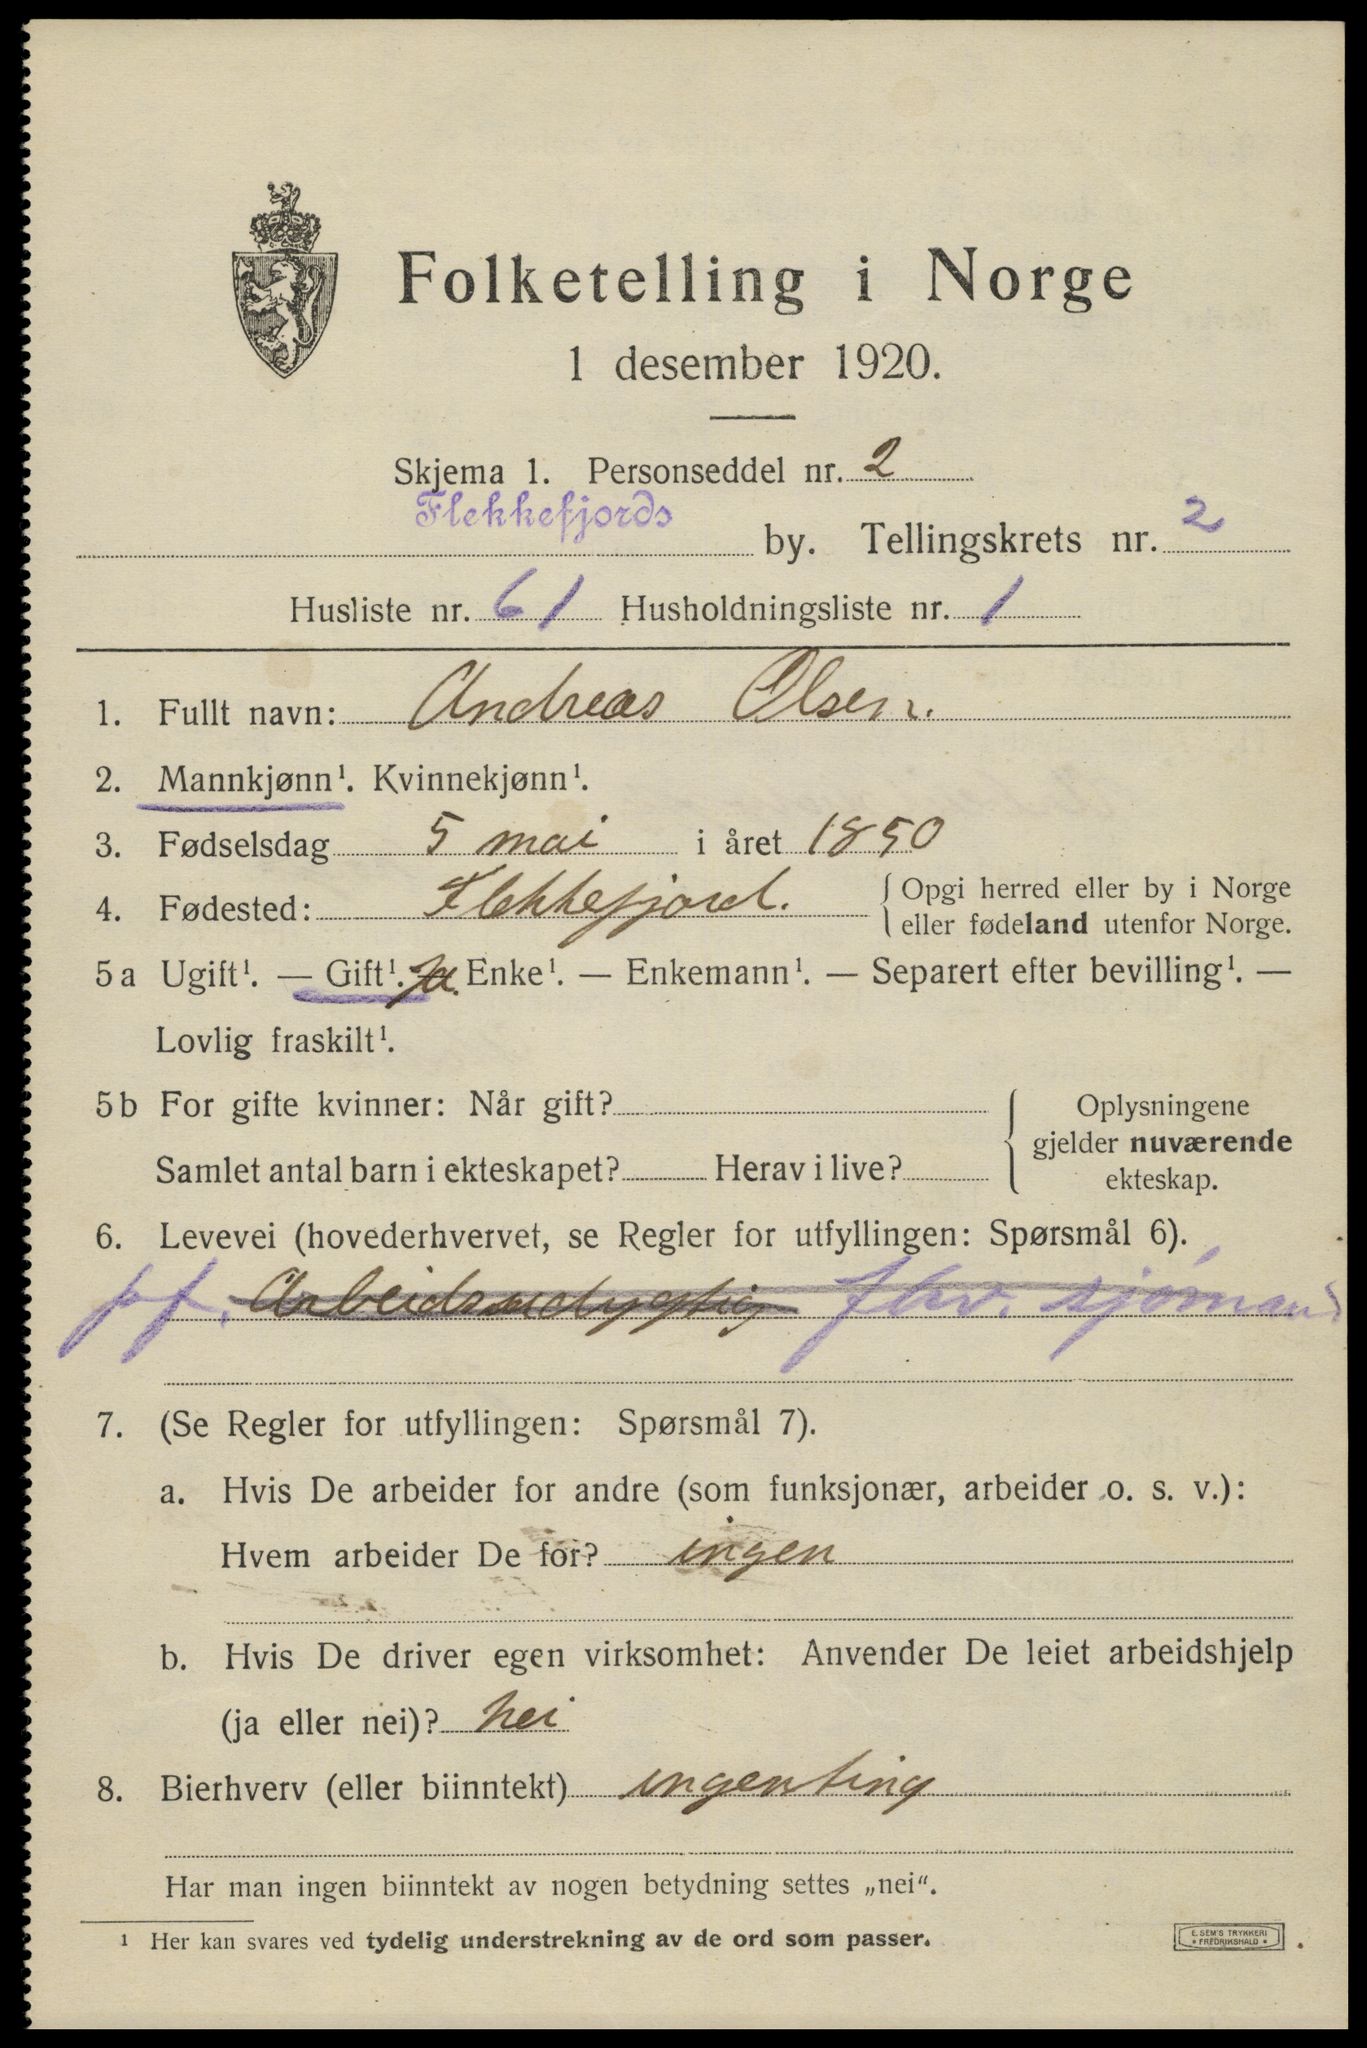 Folketelling i Norge
1 desember 1920.
Skjema 1. Personseddel nr. 2
Flekkefjords by. Tellingskrets nr. 2
Husliste nr. 61 Husholdningsliste nr. 1
1. Fullt navn: Andreas Olsen.
2. Mannkjønn¹. Kvinnekjønn¹.
3. Fødselsdag 5 mai i året 1850
4. Fødested: Flekkefjord. { Opgi herred eller by i Norge
eller fødeland utenfor Norge.
5a Ugift¹. — Gift¹. Ja. Enke¹. — Enkemann¹. — Separert efter bevilling¹. —
Lovlig fraskilt¹.
5b For gifte kvinner: Når gift? { Oplysningene
gjelder nuværende
Samlet antal barn i ekteskapet? Herav i live?
ekteskap.
6. Levevei (hovederhvervet, se Regler for utfyllingen: Spørsmål 6).
Arbeidsudygtig fhv. sjømand
7. (Se Regler for utfyllingen: Spørsmål 7).
a. Hvis De arbeider for andre (som funksjonær, arbeider o. s. v.):
Hvem arbeider De for? ingen
b. Hvis De driver egen virksomhet: Anvender De leiet arbeidshjelp
(ja eller nei)? nei
8. Bierhverv (eller biinntekt) ingenting
Har man ingen biinntekt av nogen betydning settes „nei“.
¹ Her kan svares ved tydelig understrekning av de ord som passer.
E. SEM'S TRYKKERI
FREDRIKSHALD